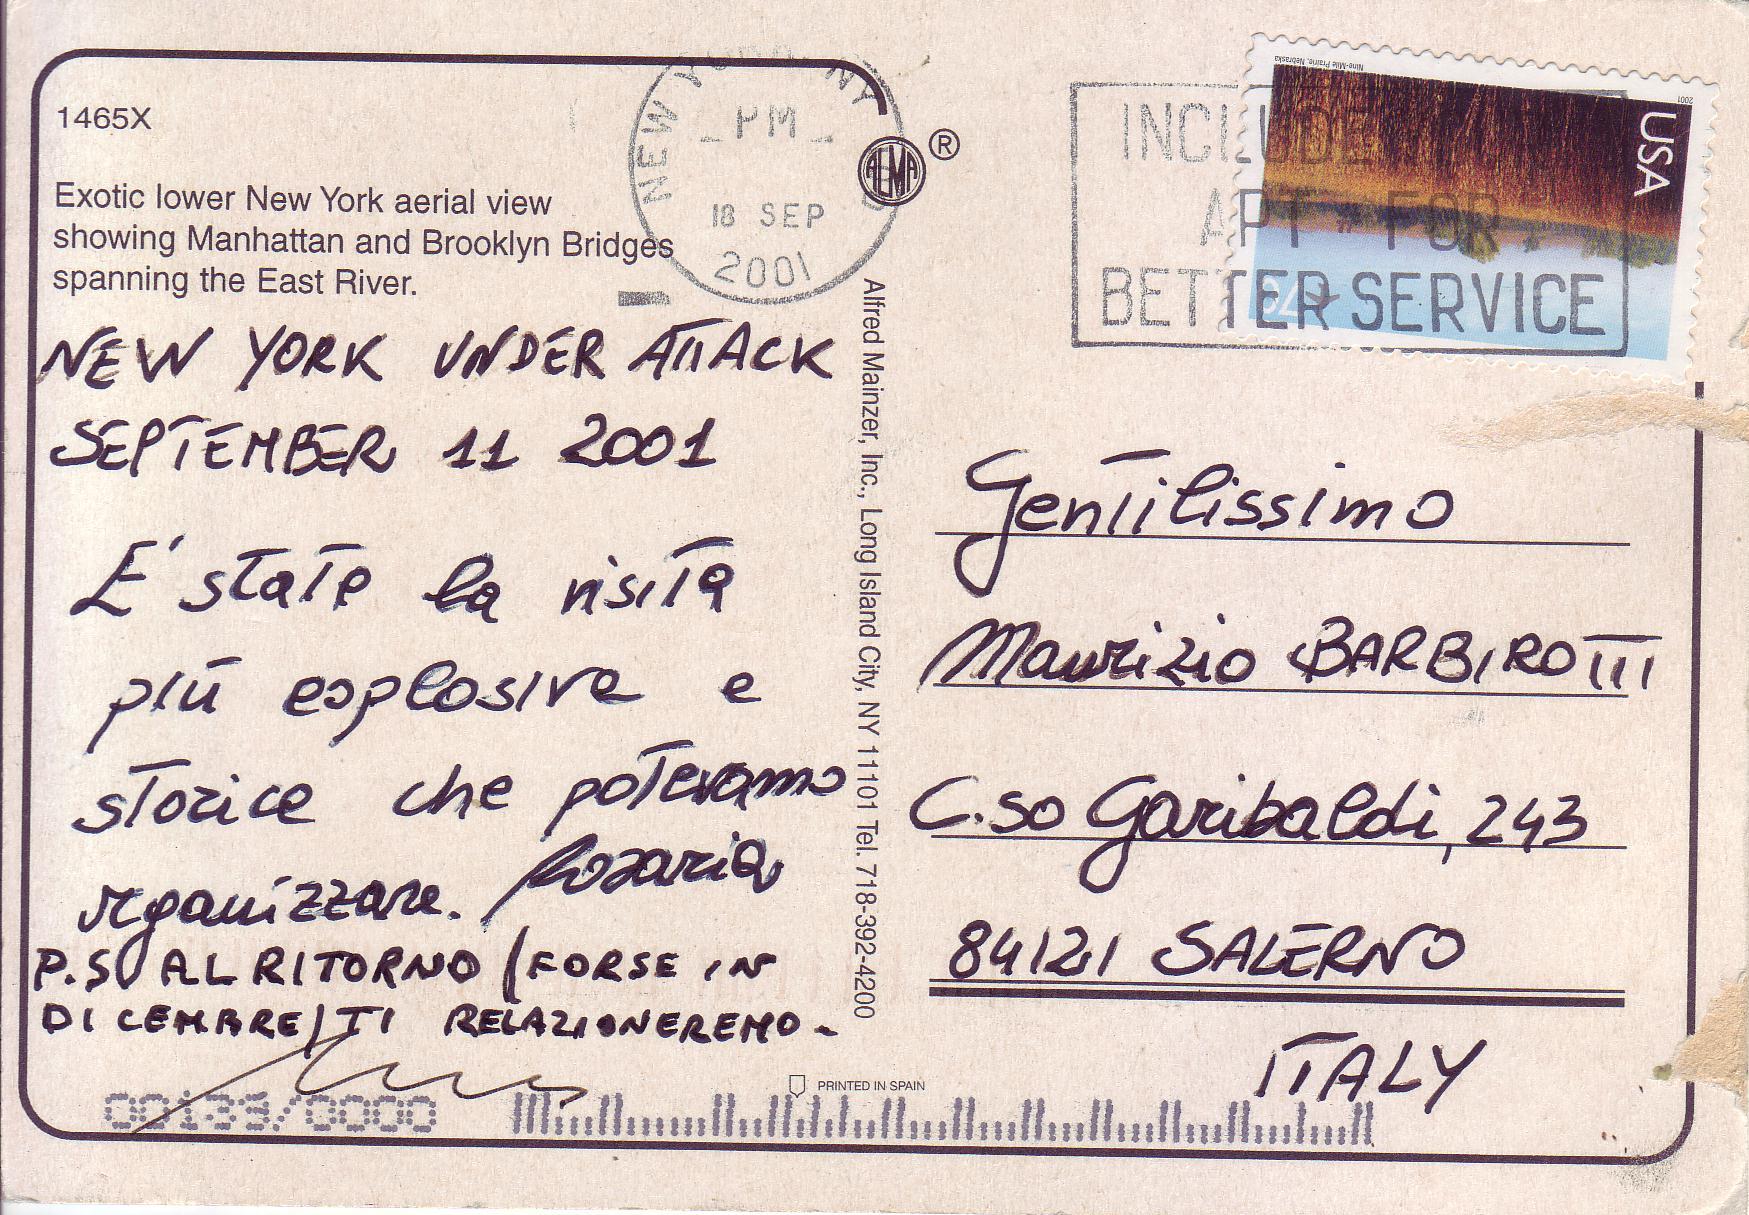 1465X
Exotic lower New York aerial view
showing Manhattan and Brooklyn Bridges
spanning the East River.
NEW YORK UNDER ATTACK
SEPTEMBER 11 2001
E' stata la visita
più esplosiva e
storica che potevamo
organizzare. Rosaria
P.S. AL RITORNO (FORSE IN
DICEMBRE) TI RELAZIONEREMO.
00133/0000
NEW YORK NY
PM
18 SEP
2001
AEMA ®
Alfred Mainzer, Inc., Long Island City, NY 11101 Tel. 718-392-4200
PRINTED IN SPAIN
INCLUDE
APT # FOR
BETTER SERVICE
Nine-Mile Prairie, Nebraska
2001
USA
70
Gentilissimo
Maurizio BARBIROTTI
C.so Garibaldi, 243
84121 SALERNO
ITALY